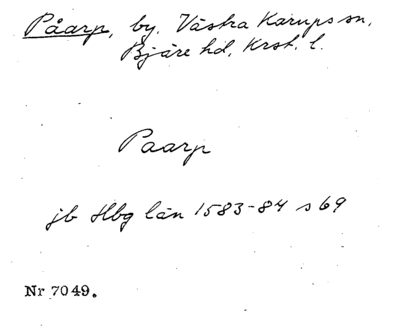 Påarp, by. Västra Karups sn,
Bjäre hd, Krst. l.
Paarp
jb Hbg län 1583-84 s 69
Nr 7049.